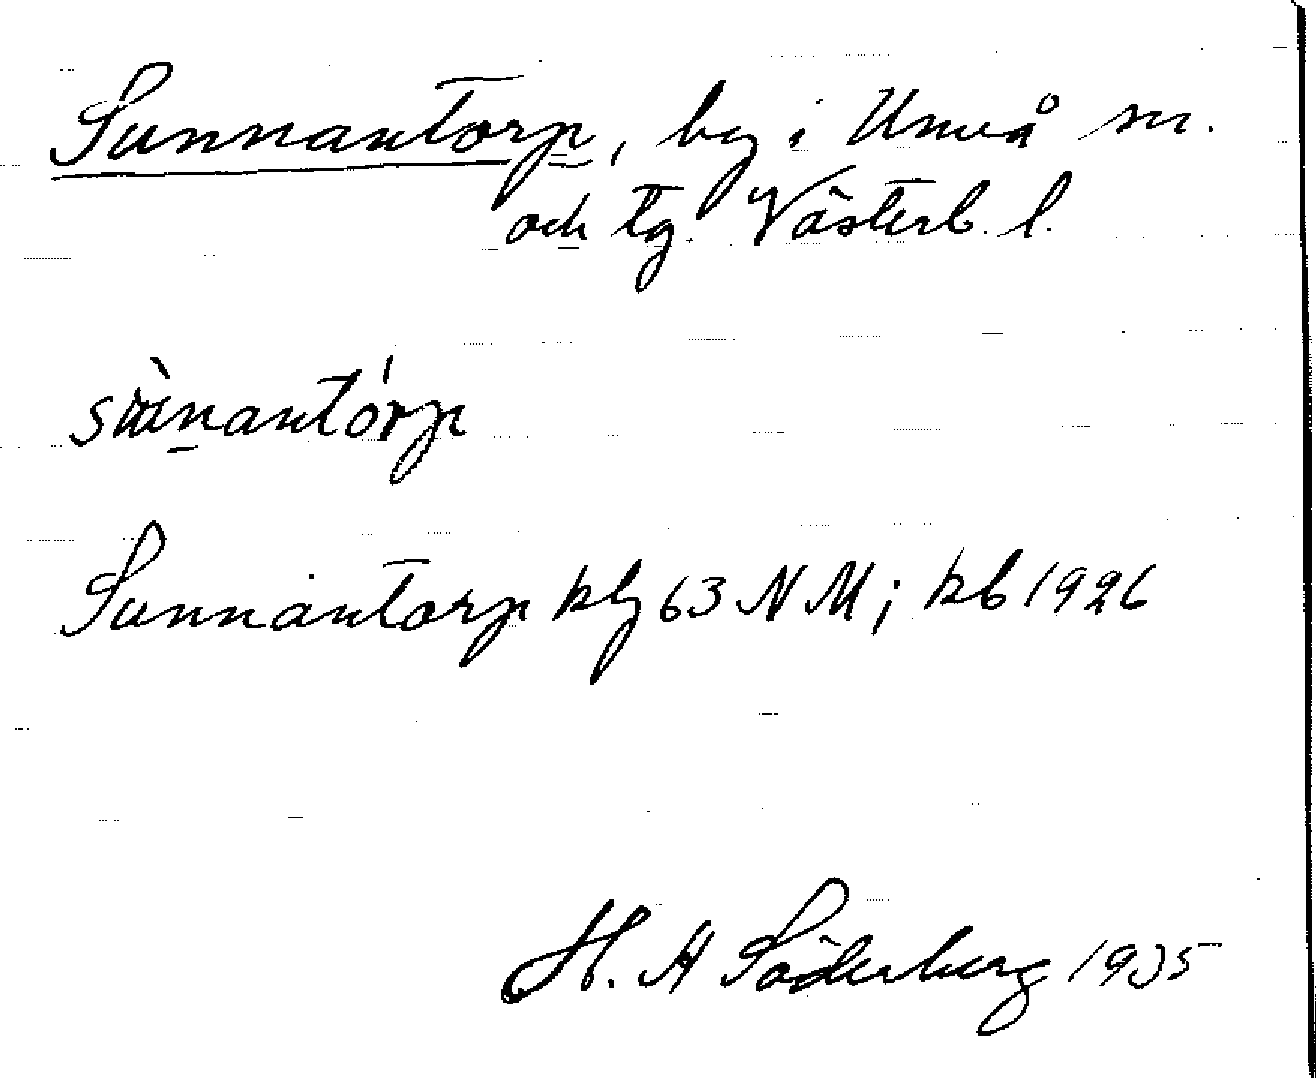 Sunnantorp, by i Umeå sn.
och tg. Västerb. l.
sùnantórp
Sunnantorp kbl 63 NM; kb 1926
H. A Söderberg 1935